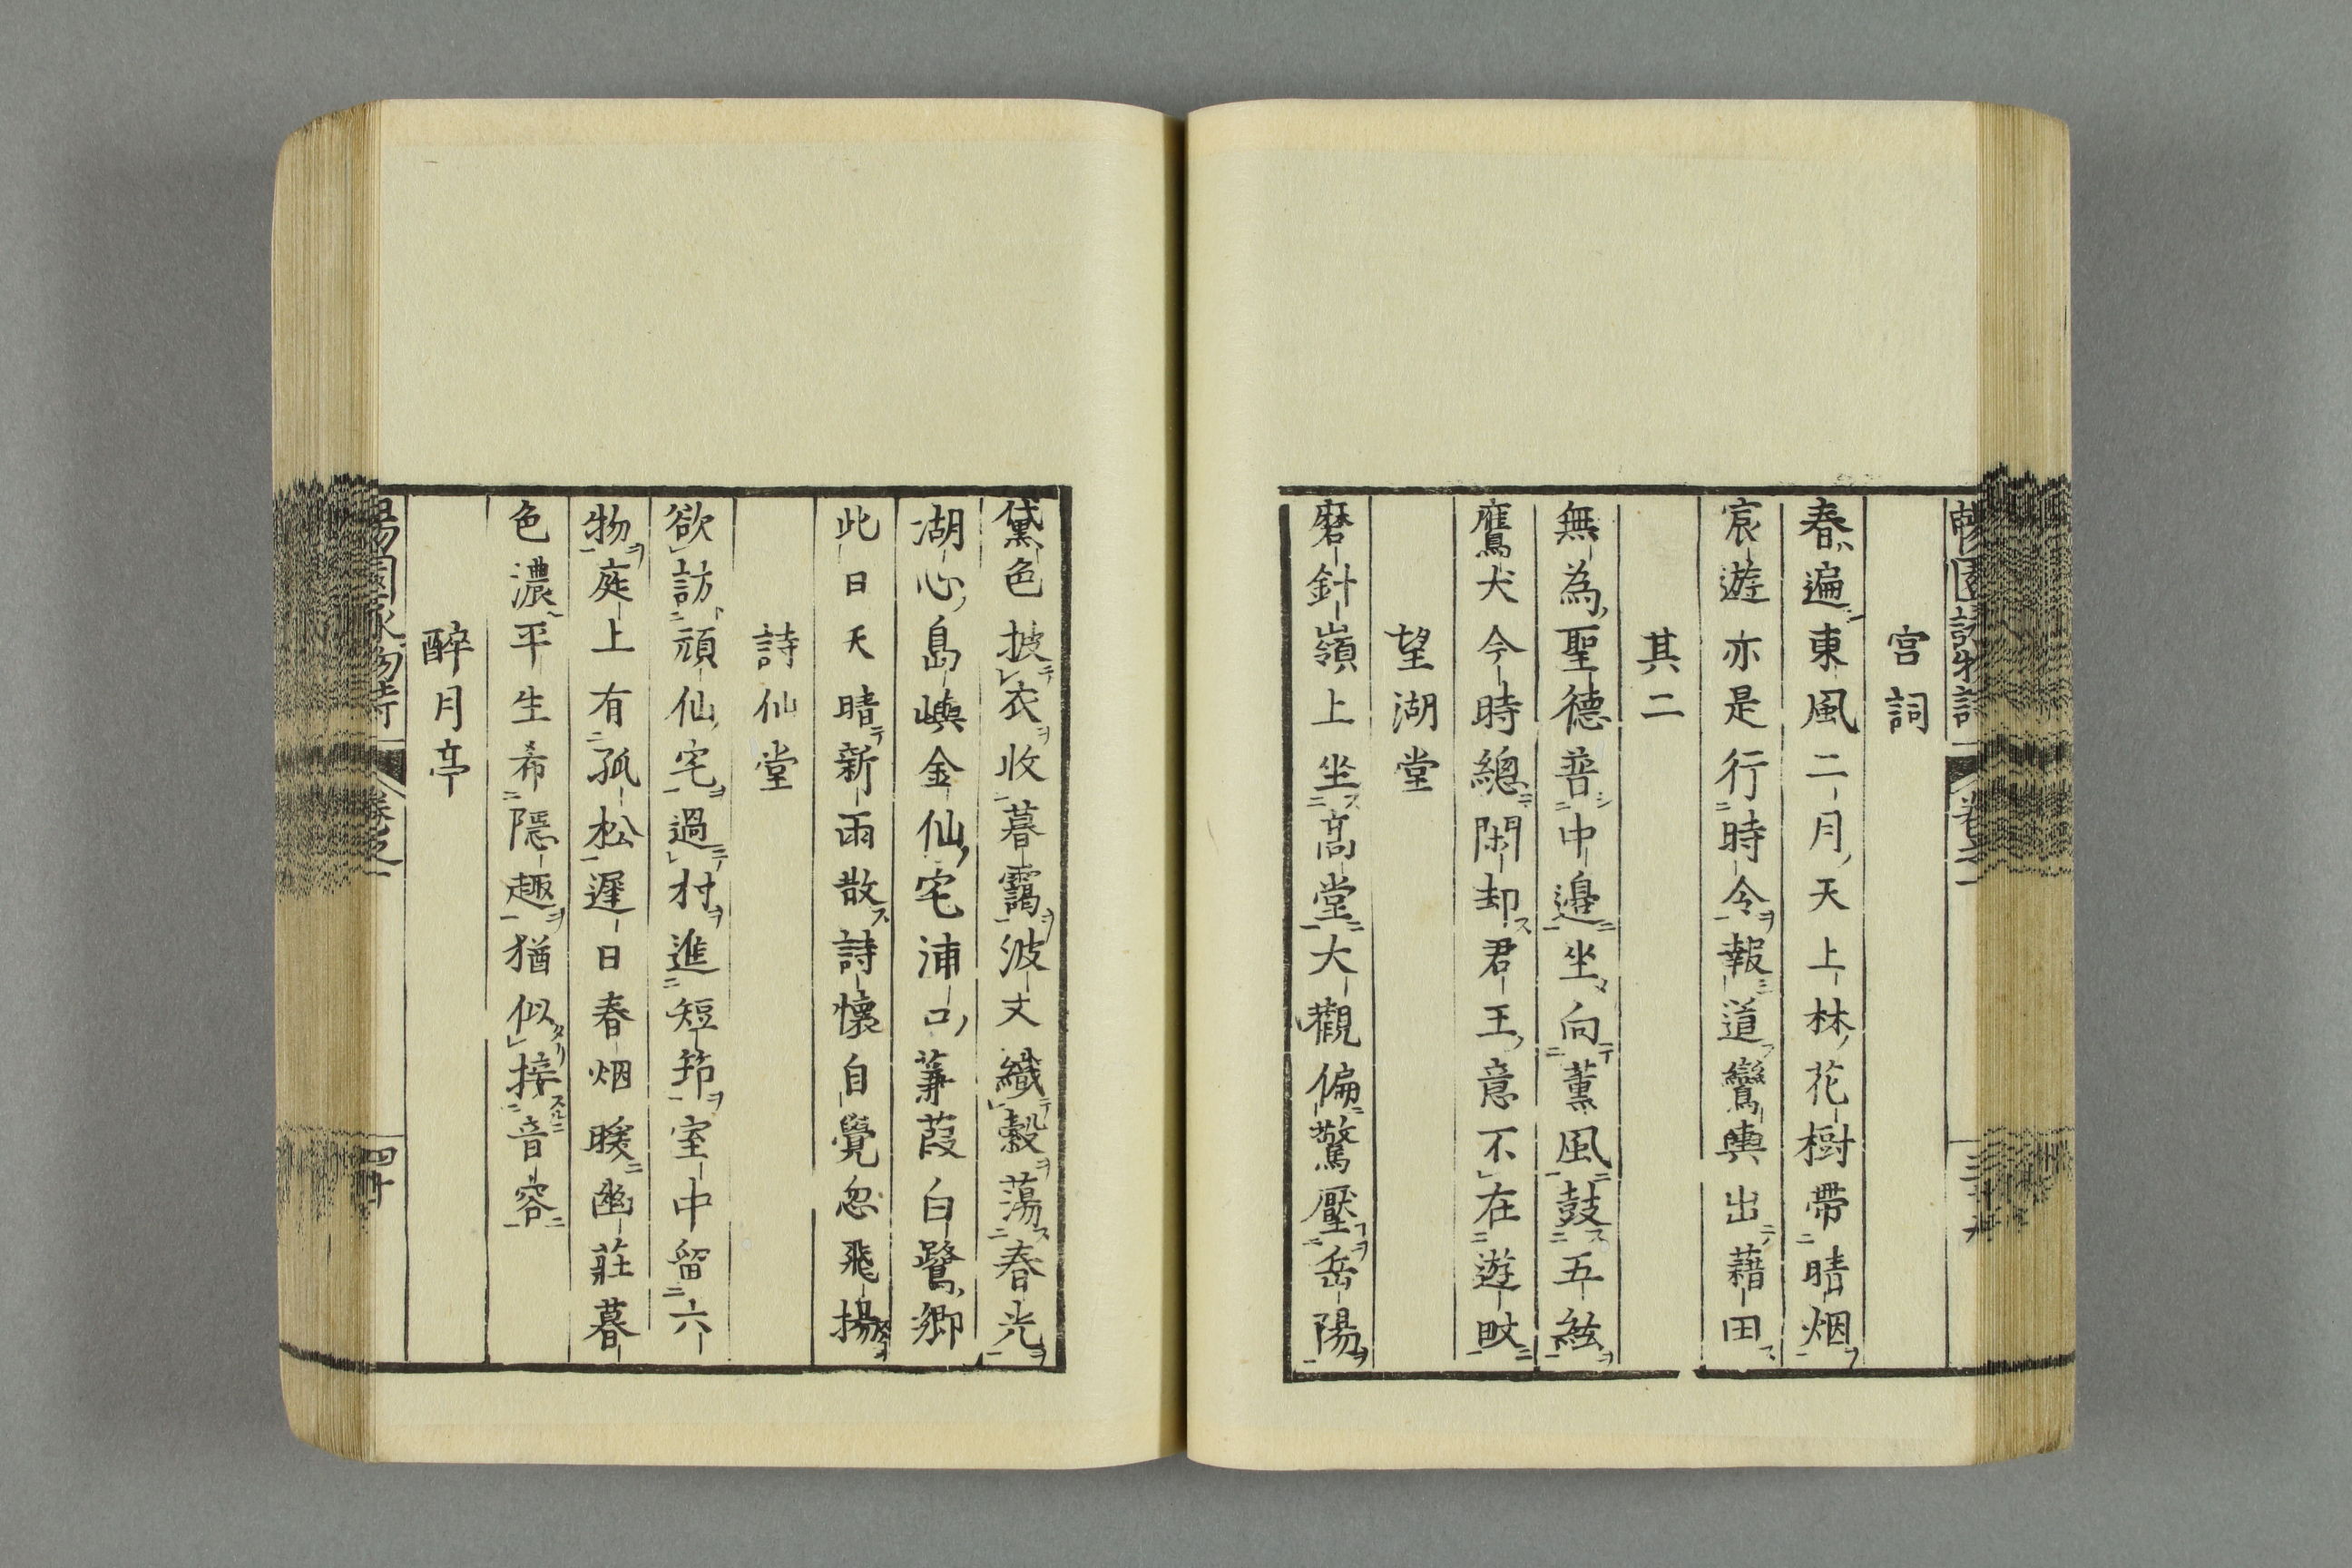 宮詞
春遍東風二月天上林花樹帶晴烟
宸遊亦是行時令報道鸞輿出藉田
其二
無為聖德普中邊坐向薰風鼓五絃
鷹犬今時總閑却君王意不在遊畋
望湖堂
磨針嶺上坐高堂大觀偏驚壓岳陽
黛色披衣收暮靄波文織縠蕩春光
湖心島嶼金仙宅浦口蒹葭白鷺鄉
此日天晴新雨散詩懷自覺忽飛揚
詩仙堂
欲訪頑仙宅過村進短筇室中留六
物庭上有孤松遲日春烟暖幽莊暮
色濃平生希隱趣猶似接音容
醉月亭
四十